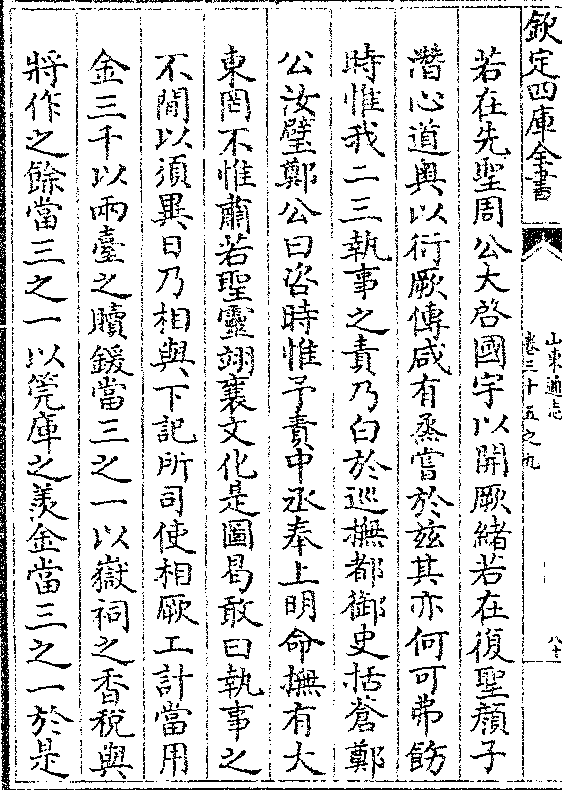 欽定四庫全書
山東通志
卷三十五之九
八十
若在先聖周公大啓國宇以開厥緒若在復聖顏子
潛心道奧以衍厥傳咸有烝嘗於兹其亦何可弗飭
時惟我二三執事之責乃白於巡撫都御史栝蒼鄭
公汝璧鄭公曰咨時惟予責中丞奉上明命撫有大
東罔不惟肅若聖靈翊襄文化是圖曷敢曰執事之
不閒以須異日乃相與下記所司使相厥工計當用
金三千以兩臺之贖鍰當三之一以嶽祠之香稅與
將作之餘當三之一以筦庫之羡金當三之一於是